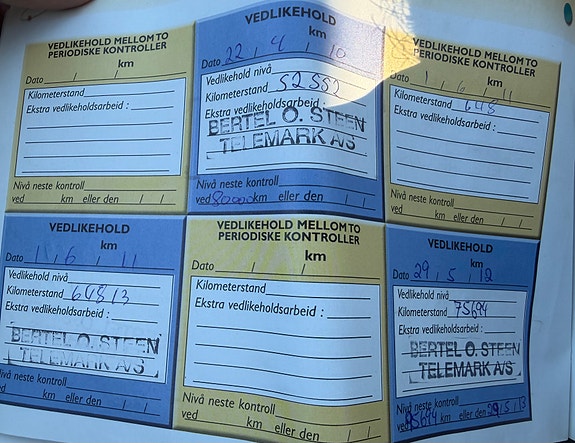 VEDLIKEHOLD MELLOM TO
PERIODISKE KONTROLLER
km
Dato / /
Kilometerstand
Ekstra vedlikeholdsarbeid :
Nivå neste kontroll
ved km eller den / /
VEDLIKEHOLD
km
Dato 22 / 4 / 10
Vedlikehold nivå
Kilometerstand 52552
Ekstra vedlikeholdsarbeid :
BERTEL O. STEEN
TELEMARK A/S
Nivå neste kontroll
ved 80000 km eller den / /
VEDLIKEHOLD MELLOM TO
PERIODISKE KONTROLLER
km
Dato 1 / 6 / 11
Kilometerstand 648
Ekstra vedlikeholdsarbeid :
Nivå neste kontroll
ved km eller den / /
VEDLIKEHOLD
km
Dato 1 / 6 / 11
Vedlikehold nivå
Kilometerstand 64813
Ekstra vedlikeholdsarbeid :
BERTEL O. STEEN
TELEMARK A/S
Nivå neste kontroll
ved km eller den / /
VEDLIKEHOLD MELLOM TO
PERIODISKE KONTROLLER
km
Dato / /
Kilometerstand
Ekstra vedlikeholdsarbeid :
Nivå neste kontroll
ved km eller den / /
VEDLIKEHOLD
km
Dato 29 / 5 / 12
Vedlikehold nivå
Kilometerstand 75694
Ekstra vedlikeholdsarbeid :
BERTEL O. STEEN
TELEMARK A/S
Nivå neste kontroll
ved 95694 km eller den 29 / 5 / 13